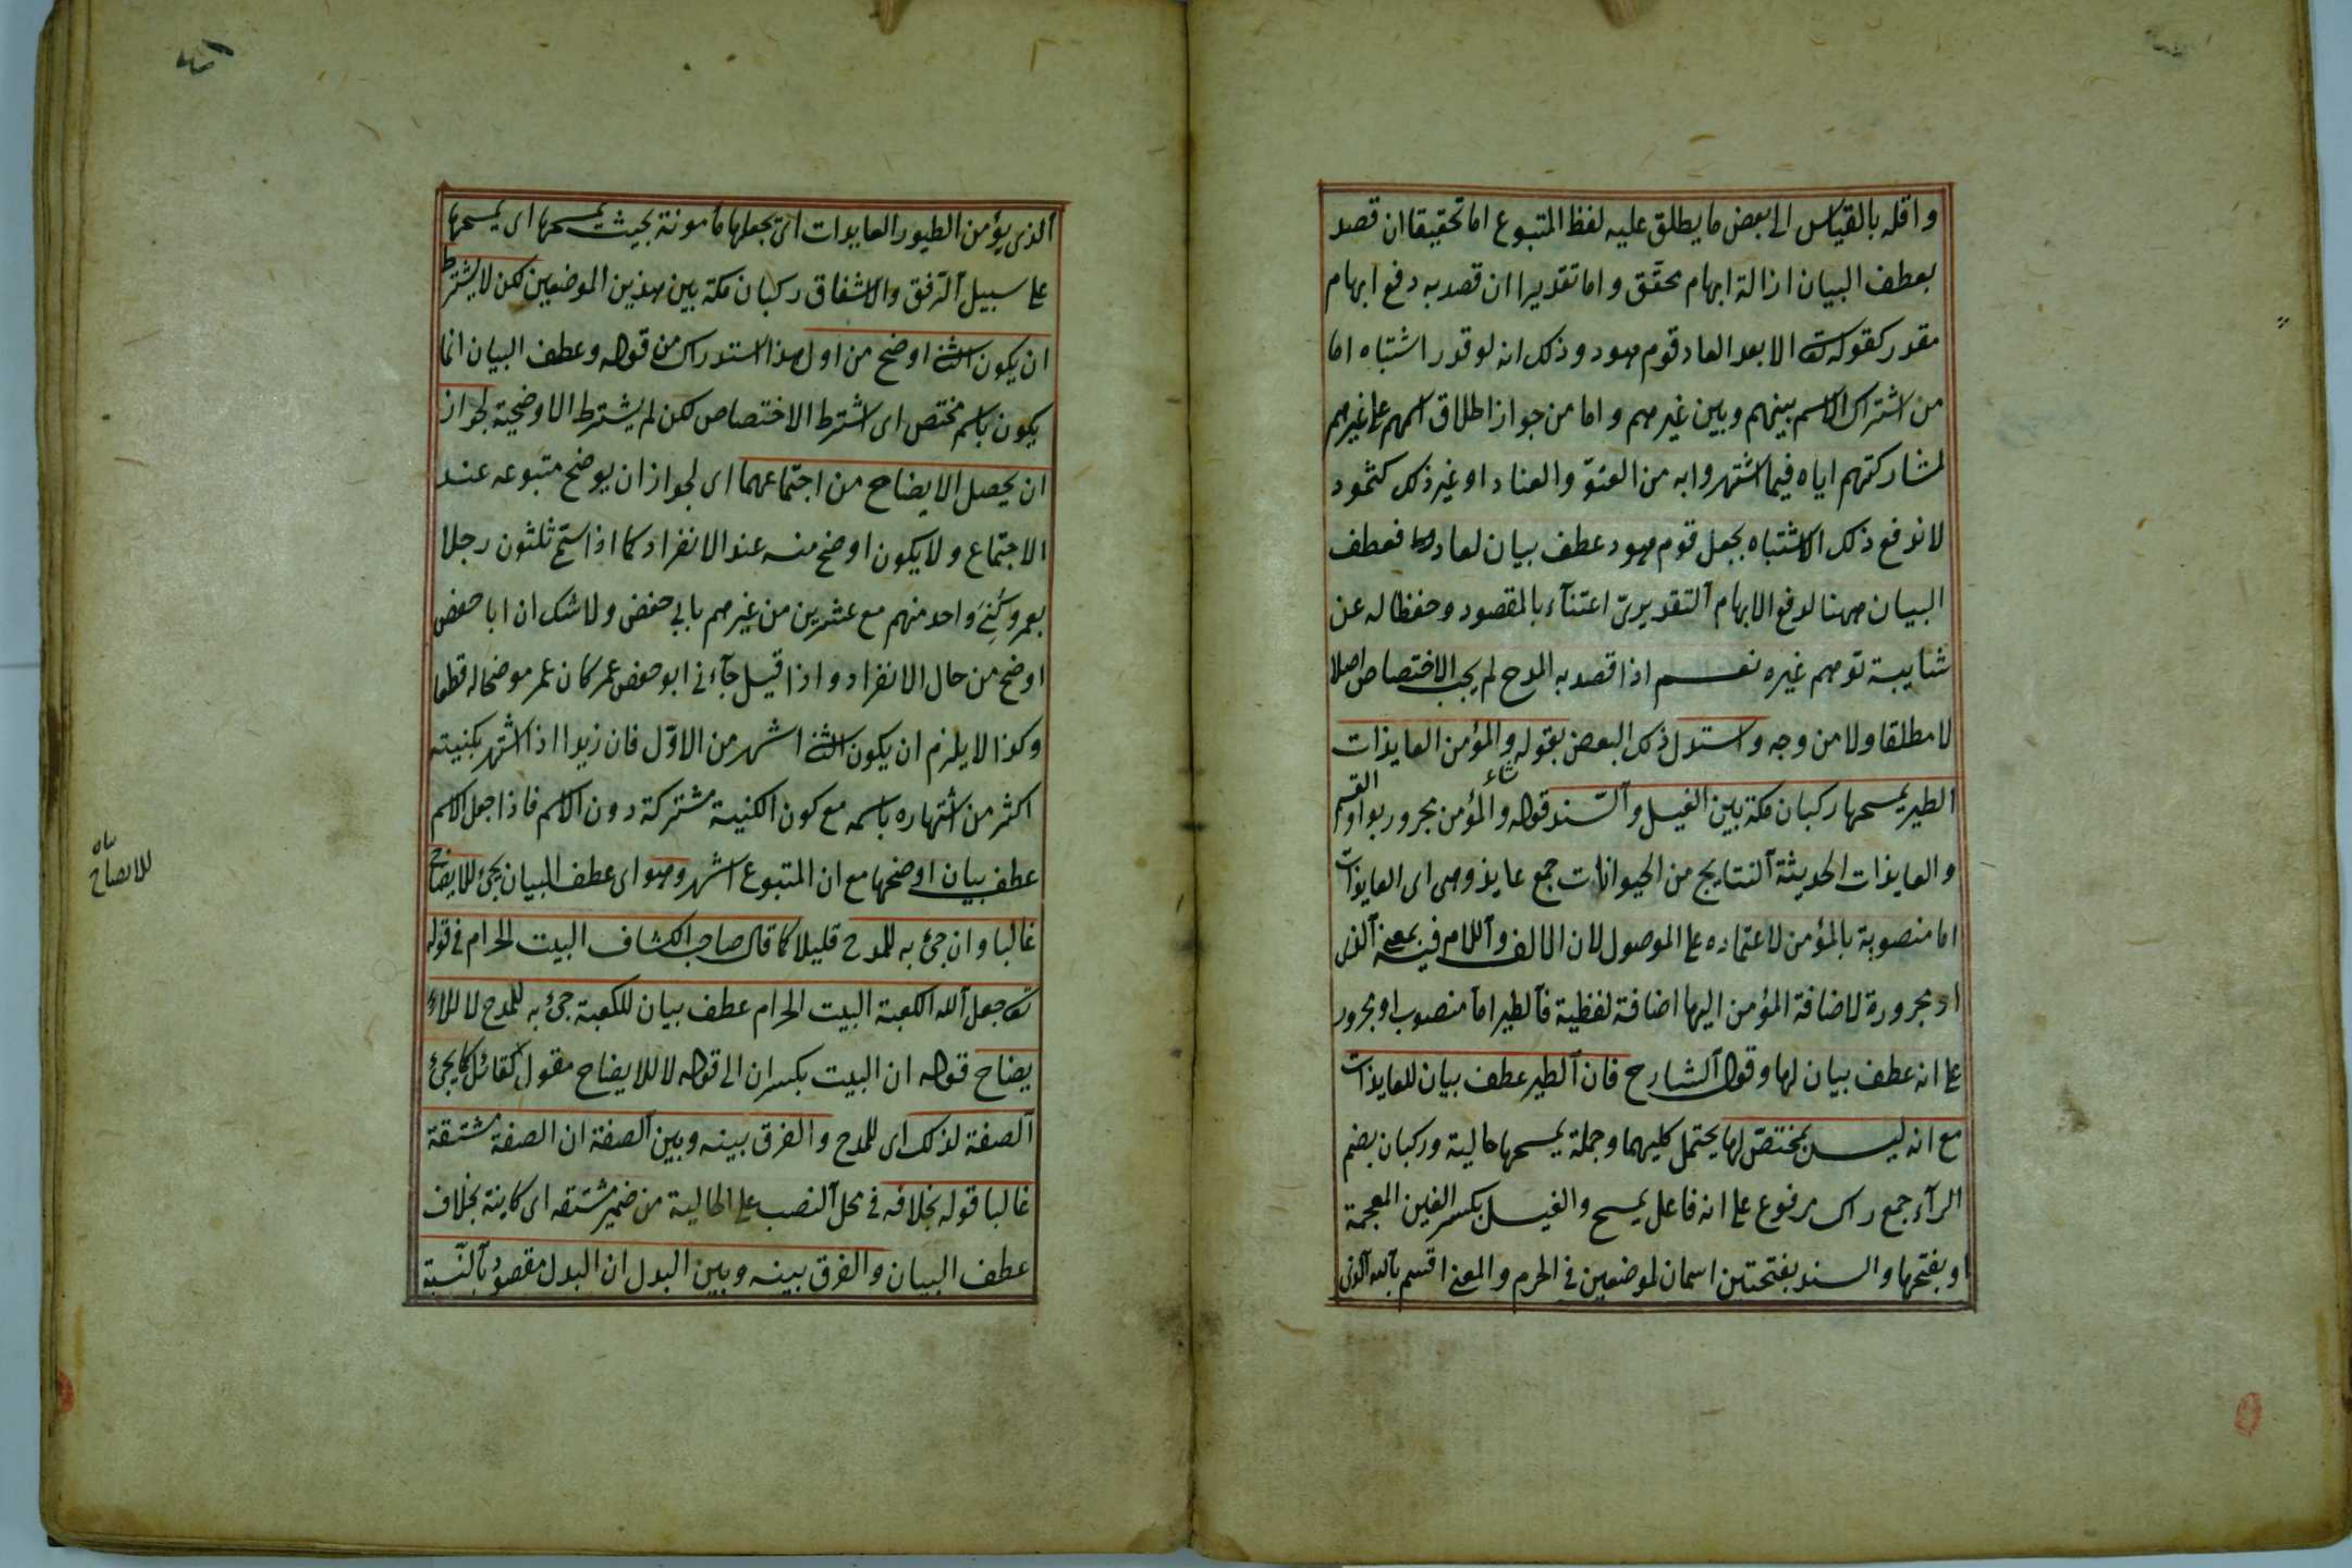 واقله بالقياس الى بعض ما يطلق عليه لفظ المتبوع اما تحقيقا ان قصد
بعطف البيان ازالة ابهام محقق واما تقديرا ان قصد به دفع ابهام
مقدر كقوله تعالى الا بعدا لعاد قوم هود وذلك انه لو قدر اشتباه اما
من اشتراك الاسم بينهم وبين غيرهم واما من جواز اطلاق اسمهم على غيرهم
لمشاركتهم اياه فيما اشتهروا به من العتوّ والعناد او غير ذلك كثمود
لاندفع ذلك الاشتباه بجعل قوم هود عطف بيان لعاد فعطف
البيان ههنا لدفع الابهام التقديريّ اعتنآء بالمقصود وحفظا له عن
شايبة توهم غيره نعم اذا قصد به المدح لم يجب الاختصاص اصلا
لا مطلقا ولا من وجه واستدل ذلك البعض بقوله والمؤمن العايذات
الطير يمسحها ركبان مكة بين الغيل والسند قوله والمؤمن مجرور بواو القسم
والعايذات الحديثة النتايج من الحيوانات جمع عايذ وهى اى العايذات
اما منصوبة بالمؤمن لاعتماده على الموصول لان الالف واللام فيه بمعنى الذى
او مجرورة لاضافة المؤمن اليها اضافة لفظية فالطير اما منصوب او مجرور
على انه عطف بيان لها وقول الشارح فان الطير عطف بيان للعايذات
مع انه ليس بمختصّ لها يحتمل كليهما وجملة يمسحها حالية وركبان بضم
الرآء جمع راكب مرفوع على انه فاعل يمسح والغيل بكسر الغين المعجمة
او بفتحها والسند بفتحتين اسمان لموضعين فى الحرم والمعنى اقسم بالله الذى
الذى يؤمن الطيور العايذات اى يجعلها مأمونة بحيث يمسحها اى يمسحها
على سبيل الترفق والاشفاق ركبان مكة بين هذين الموضعين لكن لا يشترط
ان يكون الثانى اوضح من اول هذا استدراك من قوله وعطف البيان انما
يكون باسم مختص اى اشترط الاختصاص لكن لم يشترط الاوضحية لجواز
ان يحصل الايضاح من اجتماعهما اى لجواز ان يوضح متبوعه عند
الاجتماع ولا يكون اوضح منه عند الانفراد كما اذا سمّى ثلثون رجلا
بعمر وكُنِىَ واحد منهم مع عشرين من غيرهم بابى حفص ولا شك ان ابا حفص
اوضح من حال الانفراد واذا قيل جآءنى ابو حفص عمر كان عمر موضحا له قطعا
وكذا لا يلزم ان يكون الثانى اشهر من الاوّل فان زيدا اذا اشتهر بكنيته
اكثر من اشتهاره باسمه مع كون الكنية مشتركة دون الاسم فاذا جعل الاسم
عطف بيان اوضحها مع ان المتبوع اشهر وهو اى عطف البيان يجئ للايضاح
غالبا وان جئ به للمدح قليلا كما قال صاحب الكشاف البيت الحرام فى قوله
تعالى جعل الله الكعبة البيت الحرام عطف بيان للكعبة جئ به للمدح لا للا
يضاح قوله ان البيت بكسر ان الى قوله لا للايضاح مقول لقائل كما يجئ
الصفة لذلك اى للمدح والفرق بينه وبين الصفة ان الصفة مشتقة
غالبا قوله بخلافه فى محل النصب على الحالية من ضمير مشتقه اى كاينة بخلاف
عطف البيان والفرق بينه وبين البدل ان البدل مقصود بالنّسبة
للايضاح